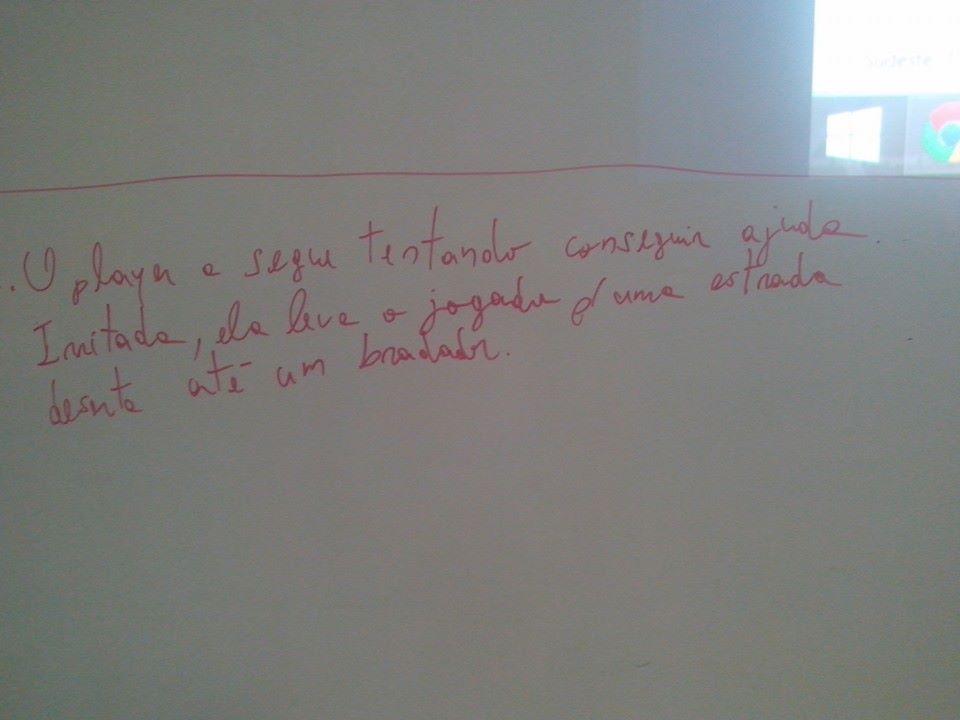 Sudeste
..O player a segue tentando conseguir ajuda.
Irritada, ela leva o jogador p/ uma estrada
deserta até um bradador.